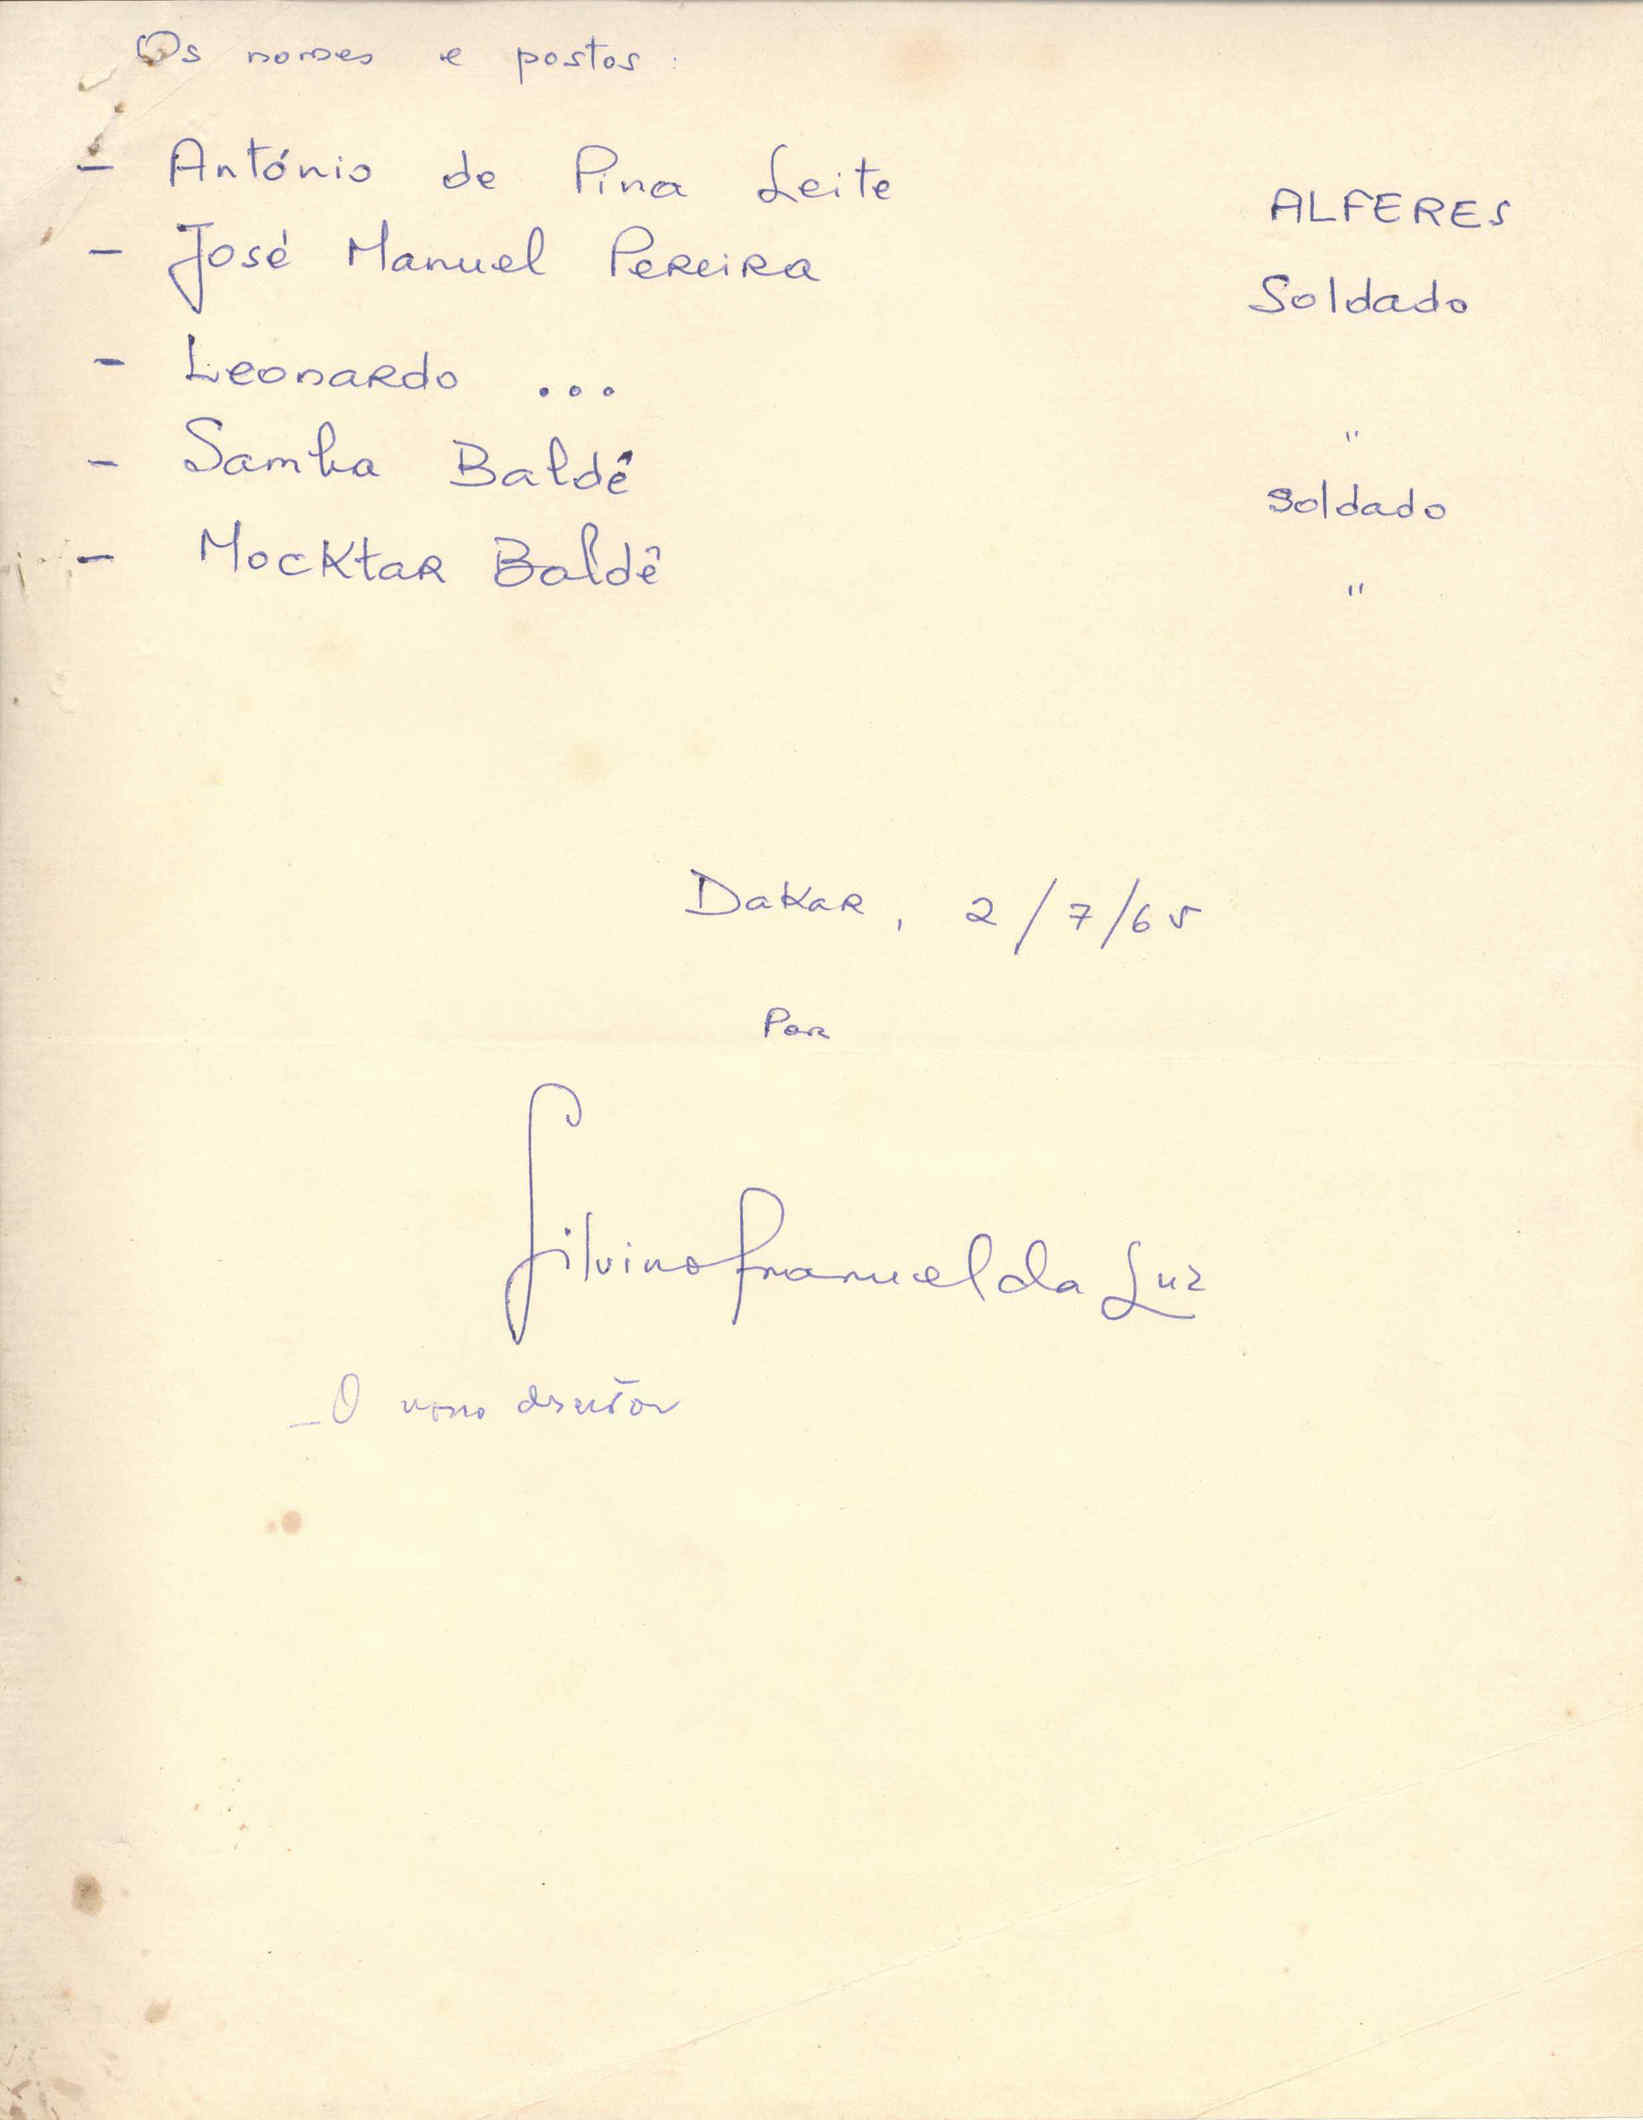 Os nomes e postos :
- António de Pina Leite ALFERES
- José Manuel Pereira Soldado
- Leonardo ... "
- Samba Baldê soldado
- Mocktar Baldê "
Dakar, 2/7/65
Por
Silvino Manuel da Luz
- O novo desertor